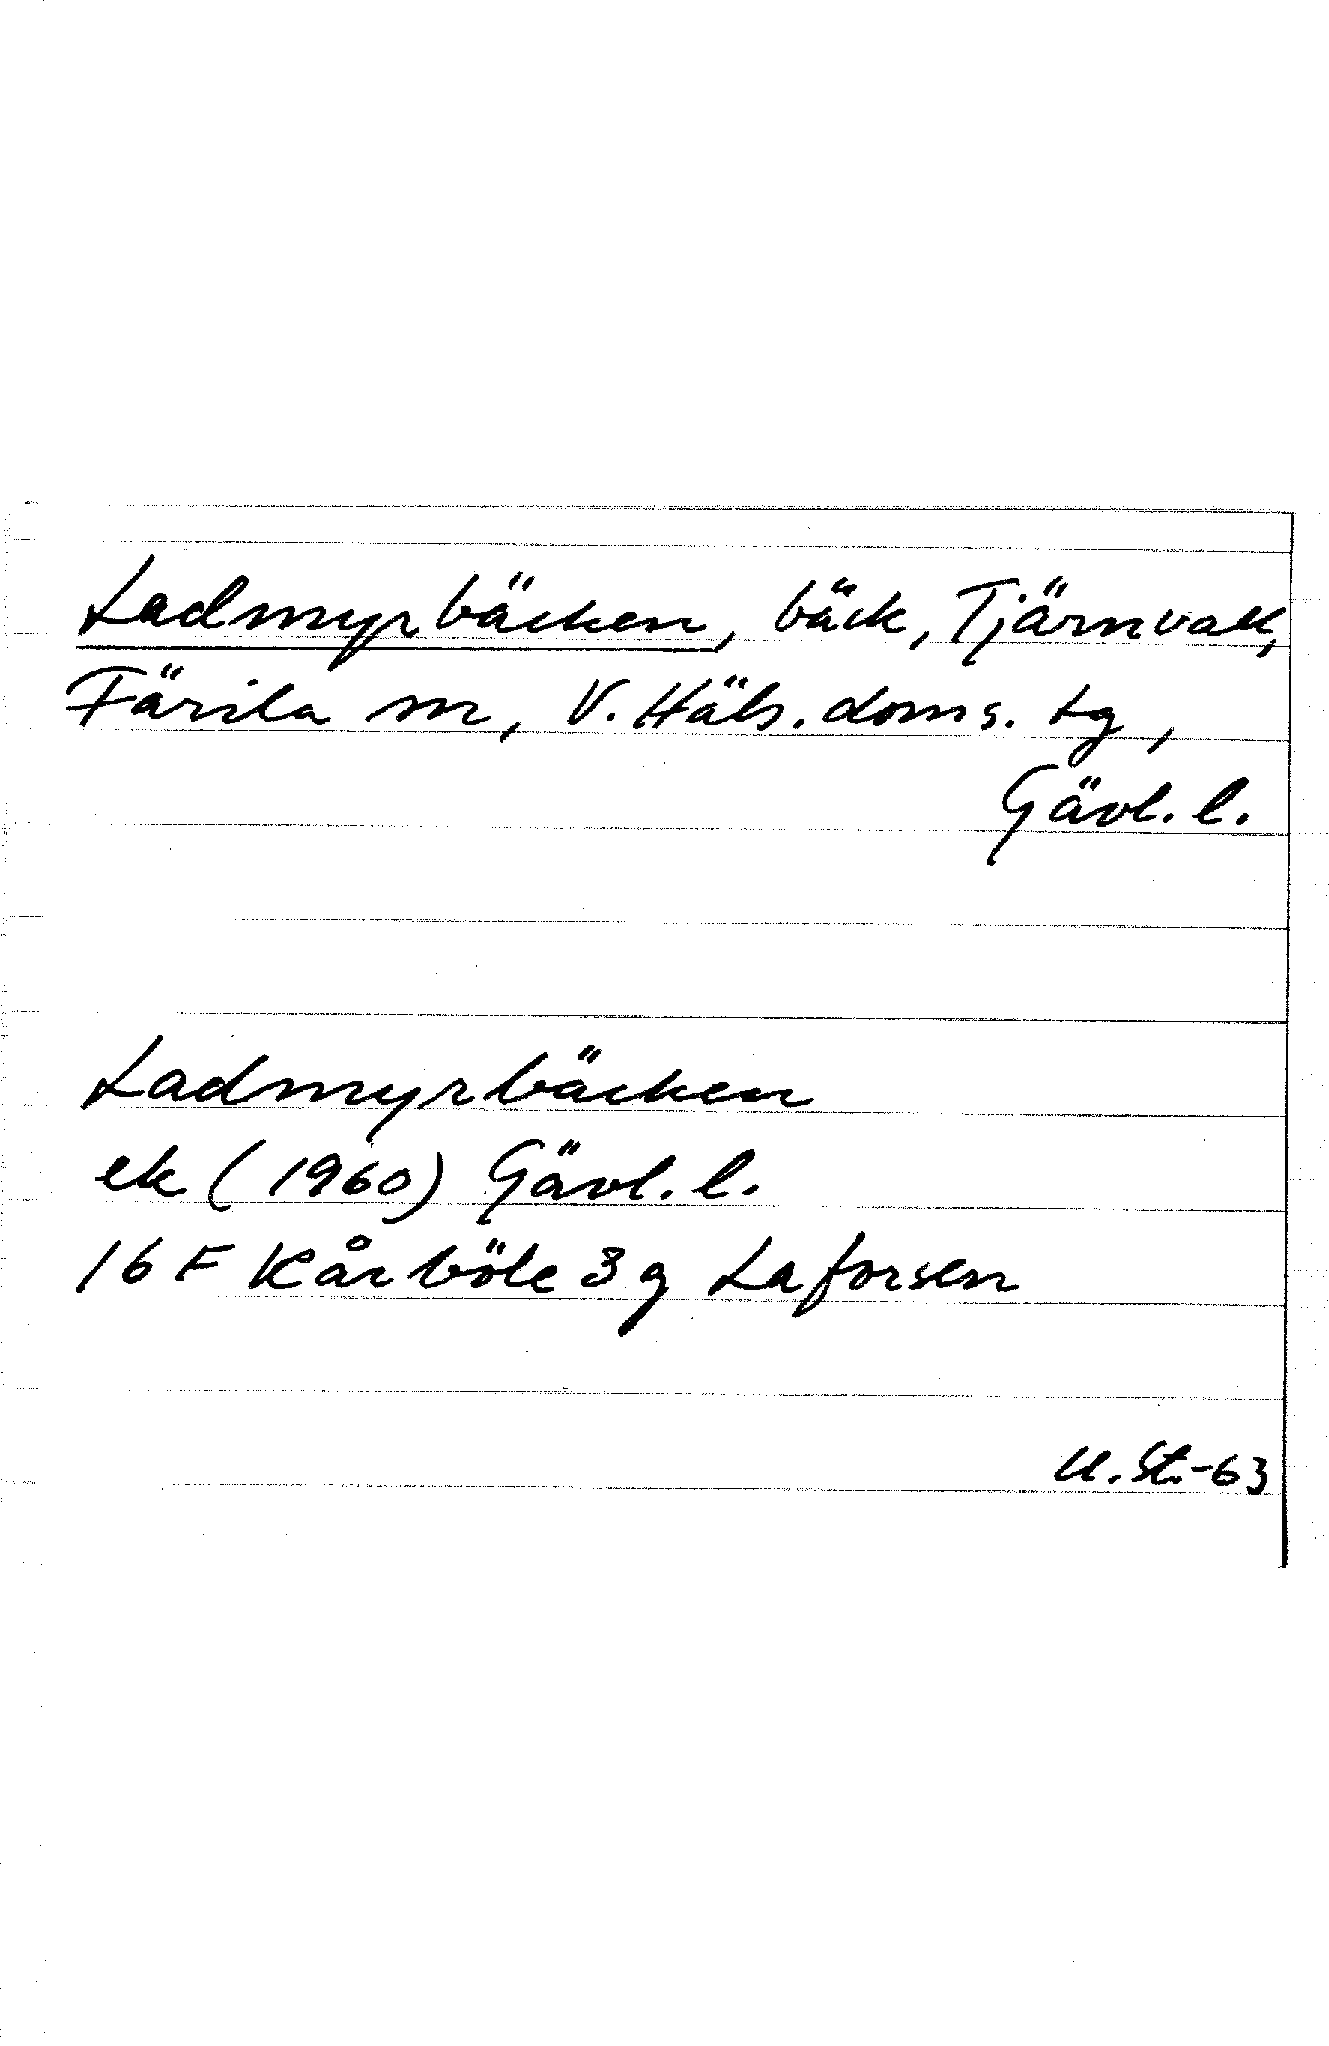 Ladmyrbäcken, bäck, Tjärnvall,
Färila sn, V. Häls. doms. lg,
Gävl. l.
Ladmyrbäcken
ek (1960) Gävl. l.
16 F Kårböle 3 g Laforsen
U. St.-63